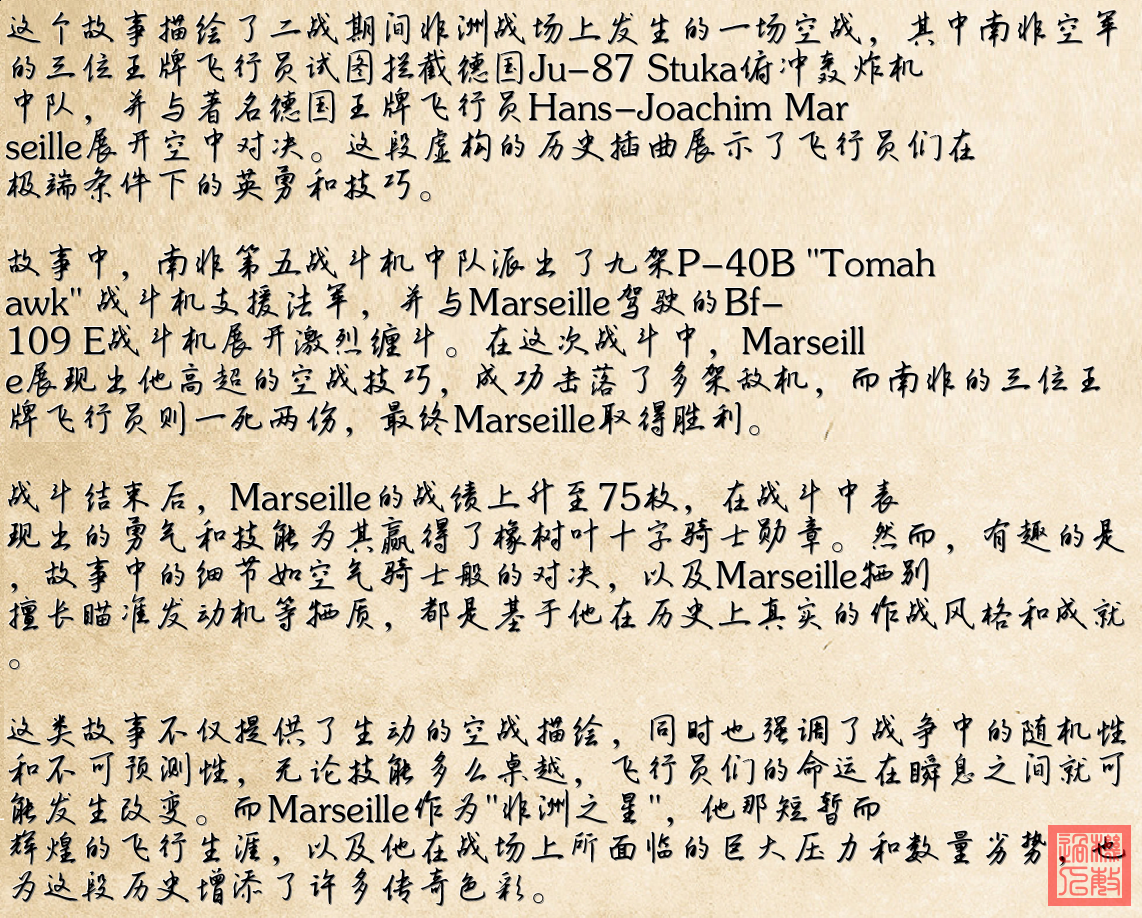 这个故事描绘了二战期间非洲战场上发生的一场空战，其中南非空军
的三位王牌飞行员试图拦截德国Ju-87 Stuka俯冲轰炸机
中队，并与著名德国王牌飞行员Hans-Joachim Mar
seille展开空中对决。这段虚构的历史插曲展示了飞行员们在
极端条件下的英勇和技巧。
故事中，南非第五战斗机中队派出了九架P-40B "Tomah
awk" 战斗机支援法军，并与Marseille驾驶的Bf-
109 E战斗机展开激烈缠斗。在这次战斗中，Marseill
e展现出他高超的空战技巧，成功击落了多架敌机，而南非的三位王
牌飞行员则一死两伤，最终Marseille取得胜利。
战斗结束后，Marseille的战绩上升至75枚，在战斗中表
现出的勇气和技能为其赢得了橡树叶十字骑士勋章。然而，有趣的是
，故事中的细节如空气骑士般的对决，以及Marseille牺别
擅长瞄准发动机等牺质，都是基于他在历史上真实的作战风格和成就
。
这类故事不仅提供了生动的空战描绘，同时也强调了战争中的随机性
和不可预测性，无论技能多么卓越，飞行员们的命运在瞬息之间就可
能发生改变。而Marseille作为"非洲之星"，他那短暂而
辉煌的飞行生涯，以及他在战场上所面临的巨大压力和数量劣势，也
为这段历史增添了许多传奇色彩。